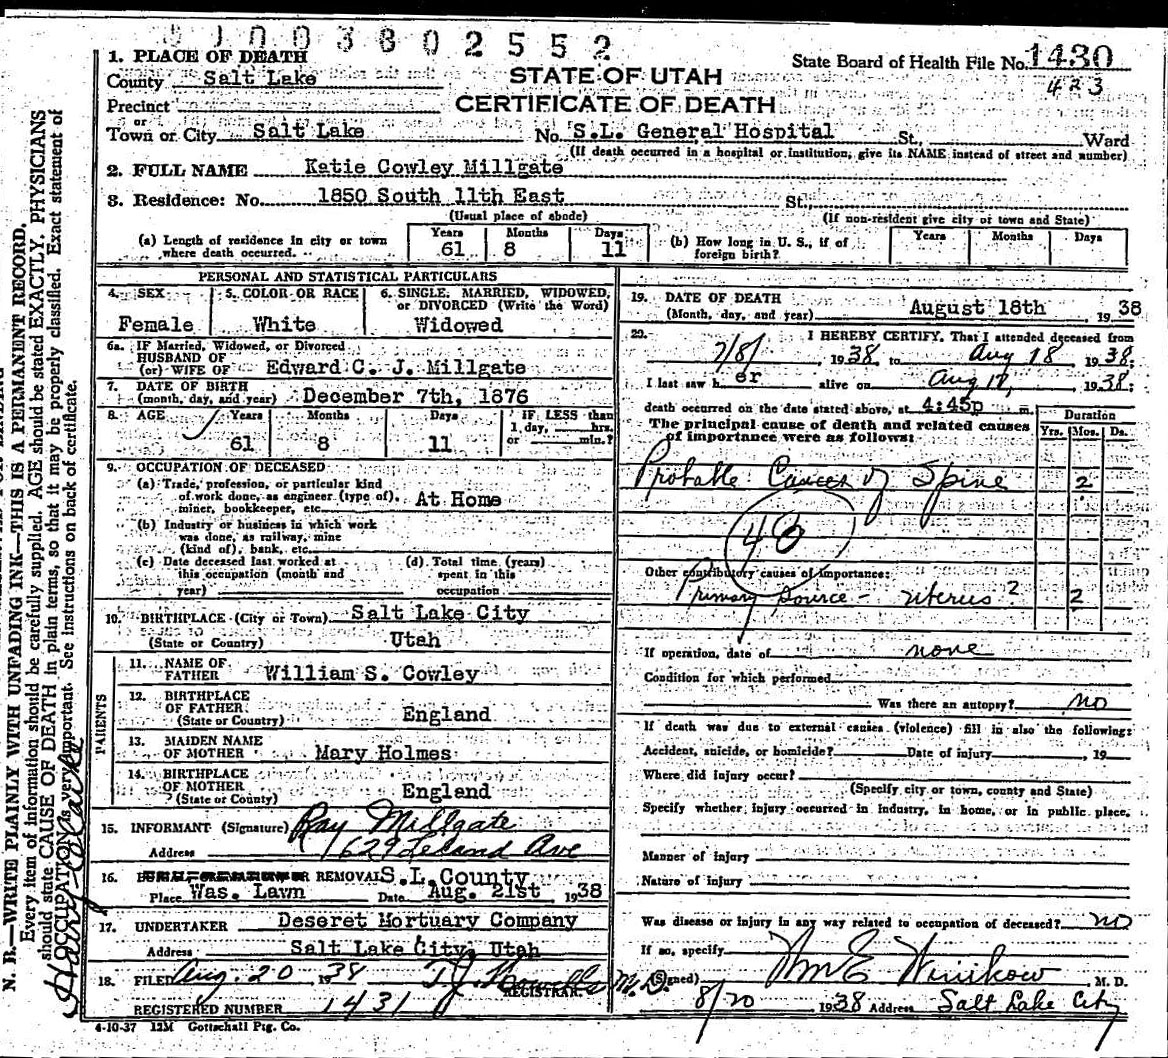 01003802552
1. PLACE OF DEATH
County Salt Lake
STATE OF UTAH
State Board of Health File No. 1430
423
Precinct
CERTIFICATE OF DEATH
or
Town or City Salt Lake No. S.L. General Hospital St., Ward
(If death occurred in a hospital or institution, give its NAME instead of street and number)
2. FULL NAME Katie Cowley Millgate
3. Residence: No. 1850 South 11th East St.,
(Usual place of abode) (If non-resident give city or town and State)
(a) Length of residence in city or town where death occurred. Years 61 Months 8 Days 11
(b) How long in U. S., if of foreign birth? Years Months Days
PERSONAL AND STATISTICAL PARTICULARS
4. SEX Female
5. COLOR OR RACE White
6. SINGLE, MARRIED, WIDOWED, or DIVORCED (Write the Word) Widowed
6a. IF Married, Widowed, or Divorced
HUSBAND OF
(or) WIFE OF Edward C. J. Millgate
7. DATE OF BIRTH
(month, day, and year) December 7th, 1876
8. AGE Years 61 Months 8 Days 11 IF LESS than 1 day, hrs. or min.?
9. OCCUPATION OF DECEASED
(a) Trade, profession, or particular kind
of work done, as engineer (type of),
miner, bookkeeper, etc. At Home
(b) Industry or business in which work
was done, as railway, mine
(kind of), bank, etc.
(c) Date deceased last worked at
this occupation (month and
year)
(d) Total time (years)
spent in this
occupation
10. BIRTHPLACE (City or Town) Salt Lake City
(State or Country) Utah
PARENTS
11. NAME OF
FATHER William S. Cowley
12. BIRTHPLACE
OF FATHER
(State or Country) England
13. MAIDEN NAME
OF MOTHER Mary Holmes
14. BIRTHPLACE
OF MOTHER
(State or County) England
15. INFORMANT (Signature) Ray Millgate
Address 1629 Leland Ave
16. REMOVAL S.L. County
Place Was. Lawn Date Aug. 21st 1938
17. UNDERTAKER Deseret Mortuary Company
Address Salt Lake City, Utah
18. FILED Aug. 20 1938 T.J. M.D.
REGISTRAR.
REGISTERED NUMBER 1431
4-10-37 12M Gottschall Ptg. Co.
19. DATE OF DEATH
(Month, day, and year) August 18th 1938
20. I HEREBY CERTIFY, That I attended deceased from
7/8/ 1938 to Aug 18 1938:
I last saw her alive on Aug 18, 1938:
death occurred on the date stated above, at 4:45p m.
The principal cause of death and related causes
of importance were as follows:
Duration
Yrs. Mos. Ds.
Probable Cancer of Spine 2
46
Other contributory causes of importance:
Primary Source - uterus? 2
If operation, date of none
Condition for which performed
Was there an autopsy? no
If death was due to external causes (violence) fill in also the following:
Accident, suicide, or homicide? Date of injury , 19
Where did injury occur?
(Specify city or town, county and State)
Specify whether injury occurred in industry, in home, or in public place,
Manner of injury
Nature of injury
Was disease or injury in any way related to occupation of deceased? no
If so, specify
(Signed) Wm E Winikow M. D.
8/20 1938 Address Salt Lake City
N. B.—WRITE PLAINLY WITH UNFADING INK—THIS IS A PERMANENT RECORD.
Every item of information should be carefully supplied. AGE should be stated EXACTLY. PHYSICIANS
should state CAUSE OF DEATH in plain terms, so that it may be properly classified. Exact statement of
OCCUPATION is very important. See instructions on back of certificate.